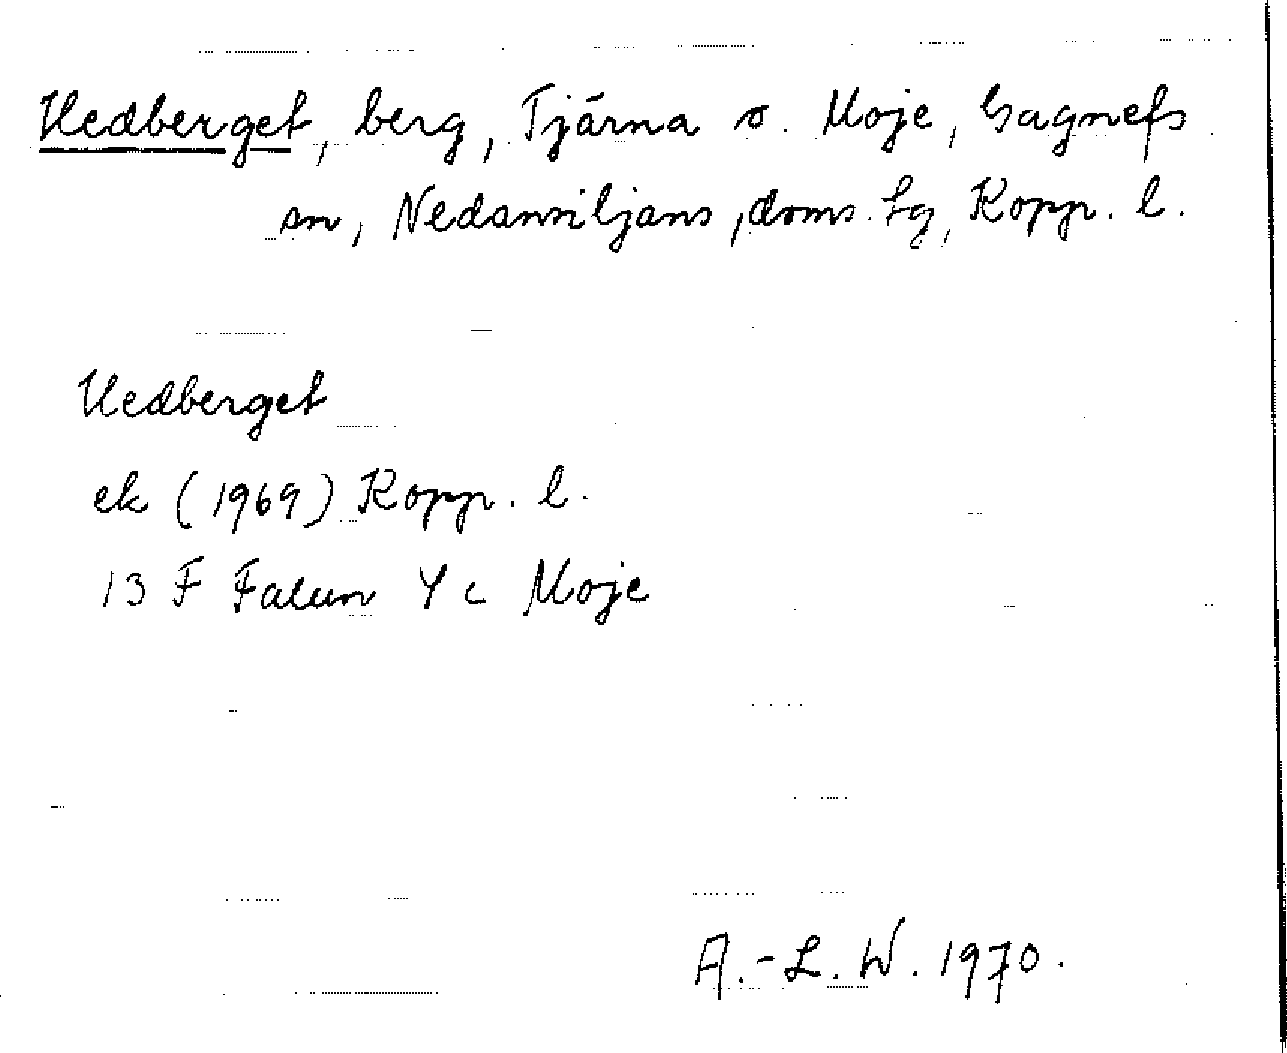 Hedberget, berg, Tjärna o. Moje, Gagnefs
sn, Nedansiljans doms. tg, Kopp. l.
Hedberget
ek (1969) Kopp. l.
13 F Falun Y c Moje
A.-L. W. 1970.